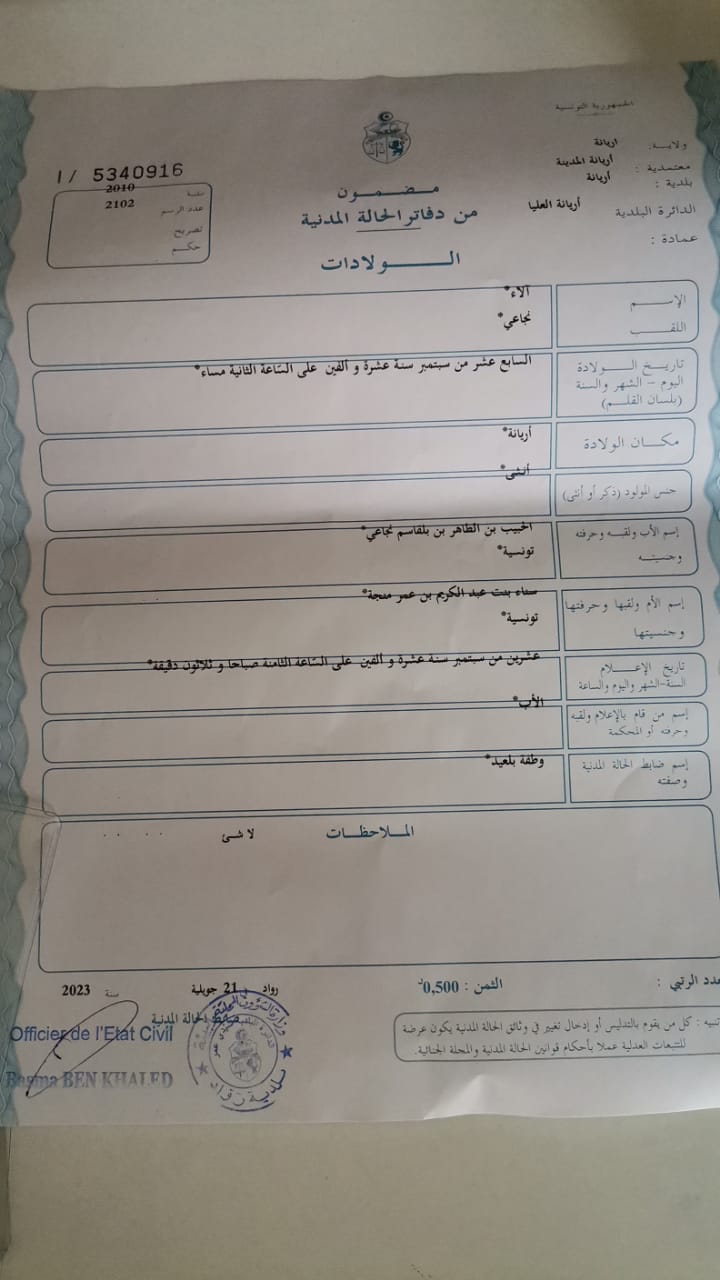 الجمهورية التونسية
ولاية: اريانة
معتمدية : أريانة المدينة
بلدية : أريانة
الدائرة البلدية أريانة العليا
عمادة :
I/ 5340916
سنة 2010
عدد الرسم 2102
تصريح
حكم
مضمون
من دفاتر الحالة المدنية
الولادات
الإسم آلاء*
اللقب نجاعي*
تاريخ الولادة
اليوم – الشهر والسنة
(بلسان القلم)
السابع عشر من سبتمبر سنة عشرة و ألفين على السّاعة الثانية مساء*
مكان الولادة أريانة*
جنس المولود (ذكر أو أنثى) أنثى*
إسم الأب ولقبه وحرفته
وجنسيته
الحبيب بن الطاهر بن بلقاسم نجاعي*
تونسية*
إسم الأم ولقبها وحرفتها
وجنسيتها
سناء بنت عبد الكريم بن عمر منجة*
تونسية*
تاريخ الإعلام
السنة-الشهر واليوم والساعة
عشرين من سبتمبر سنة عشرة و ألفين على السّاعة الثامنة صباحا و ثلاثون دقيقة*
إسم من قام بالإعلام ولقبه
وحرفته أو المحكمة
الأب*
إسم ضابط الحالة المدنية
وصفته
وطفة بلعيد*
الملاحظات
لا شئ
عدد الرتبي :
الثمن : 0,500د
رواد في 21 جويلية سنة 2023
ضابط الحالة المدنية
Officier de l'Etat Civil
Basma BEN KHALED
وزارة الشؤون المحلية
بلدية رواد
تنبيه : كل من يقوم بالتدليس أو إدخال تغيير في وثائق الحالة المدنية يكون عرضة
للتتبعات العدلية عملا بأحكام قوانين الحالة المدنية والمجلة الجنائية.